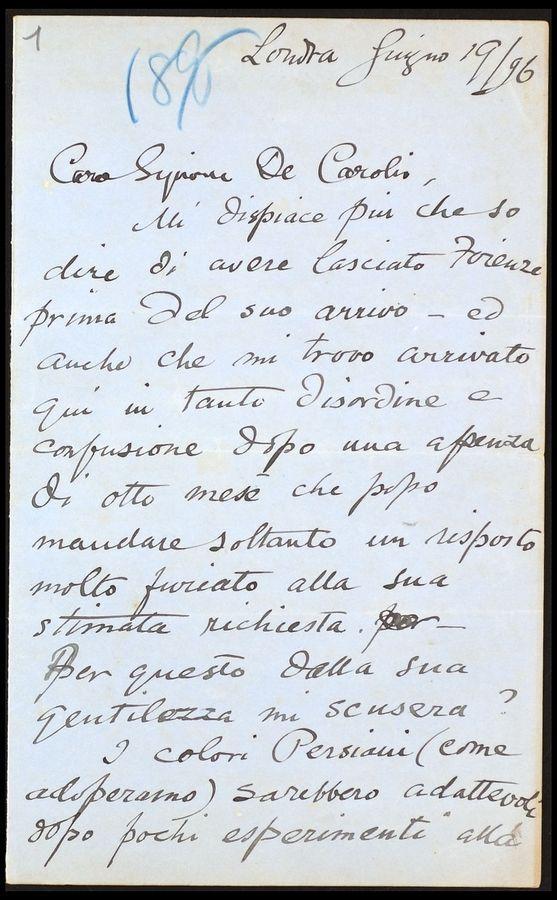 1
189
Londra Giugno 19/96
Caro Signore De Carolis,
Mi dispiace piu che so
dire di avere lasciato Firenze
prima del suo arrivo – ed
anche che mi trovo arrivato
qui in tanto disordine e
confusione dopo una assenza
di otto mese che posso
mandare soltanto un risposto
molto furiato alla sua
stimata richiesta. per –
Per questo dalla sua
gentilezza mi scusera ?
I colori Persiani (come
adoperamo) sarebbero adattevoli
dopo pochi esperimenti alla